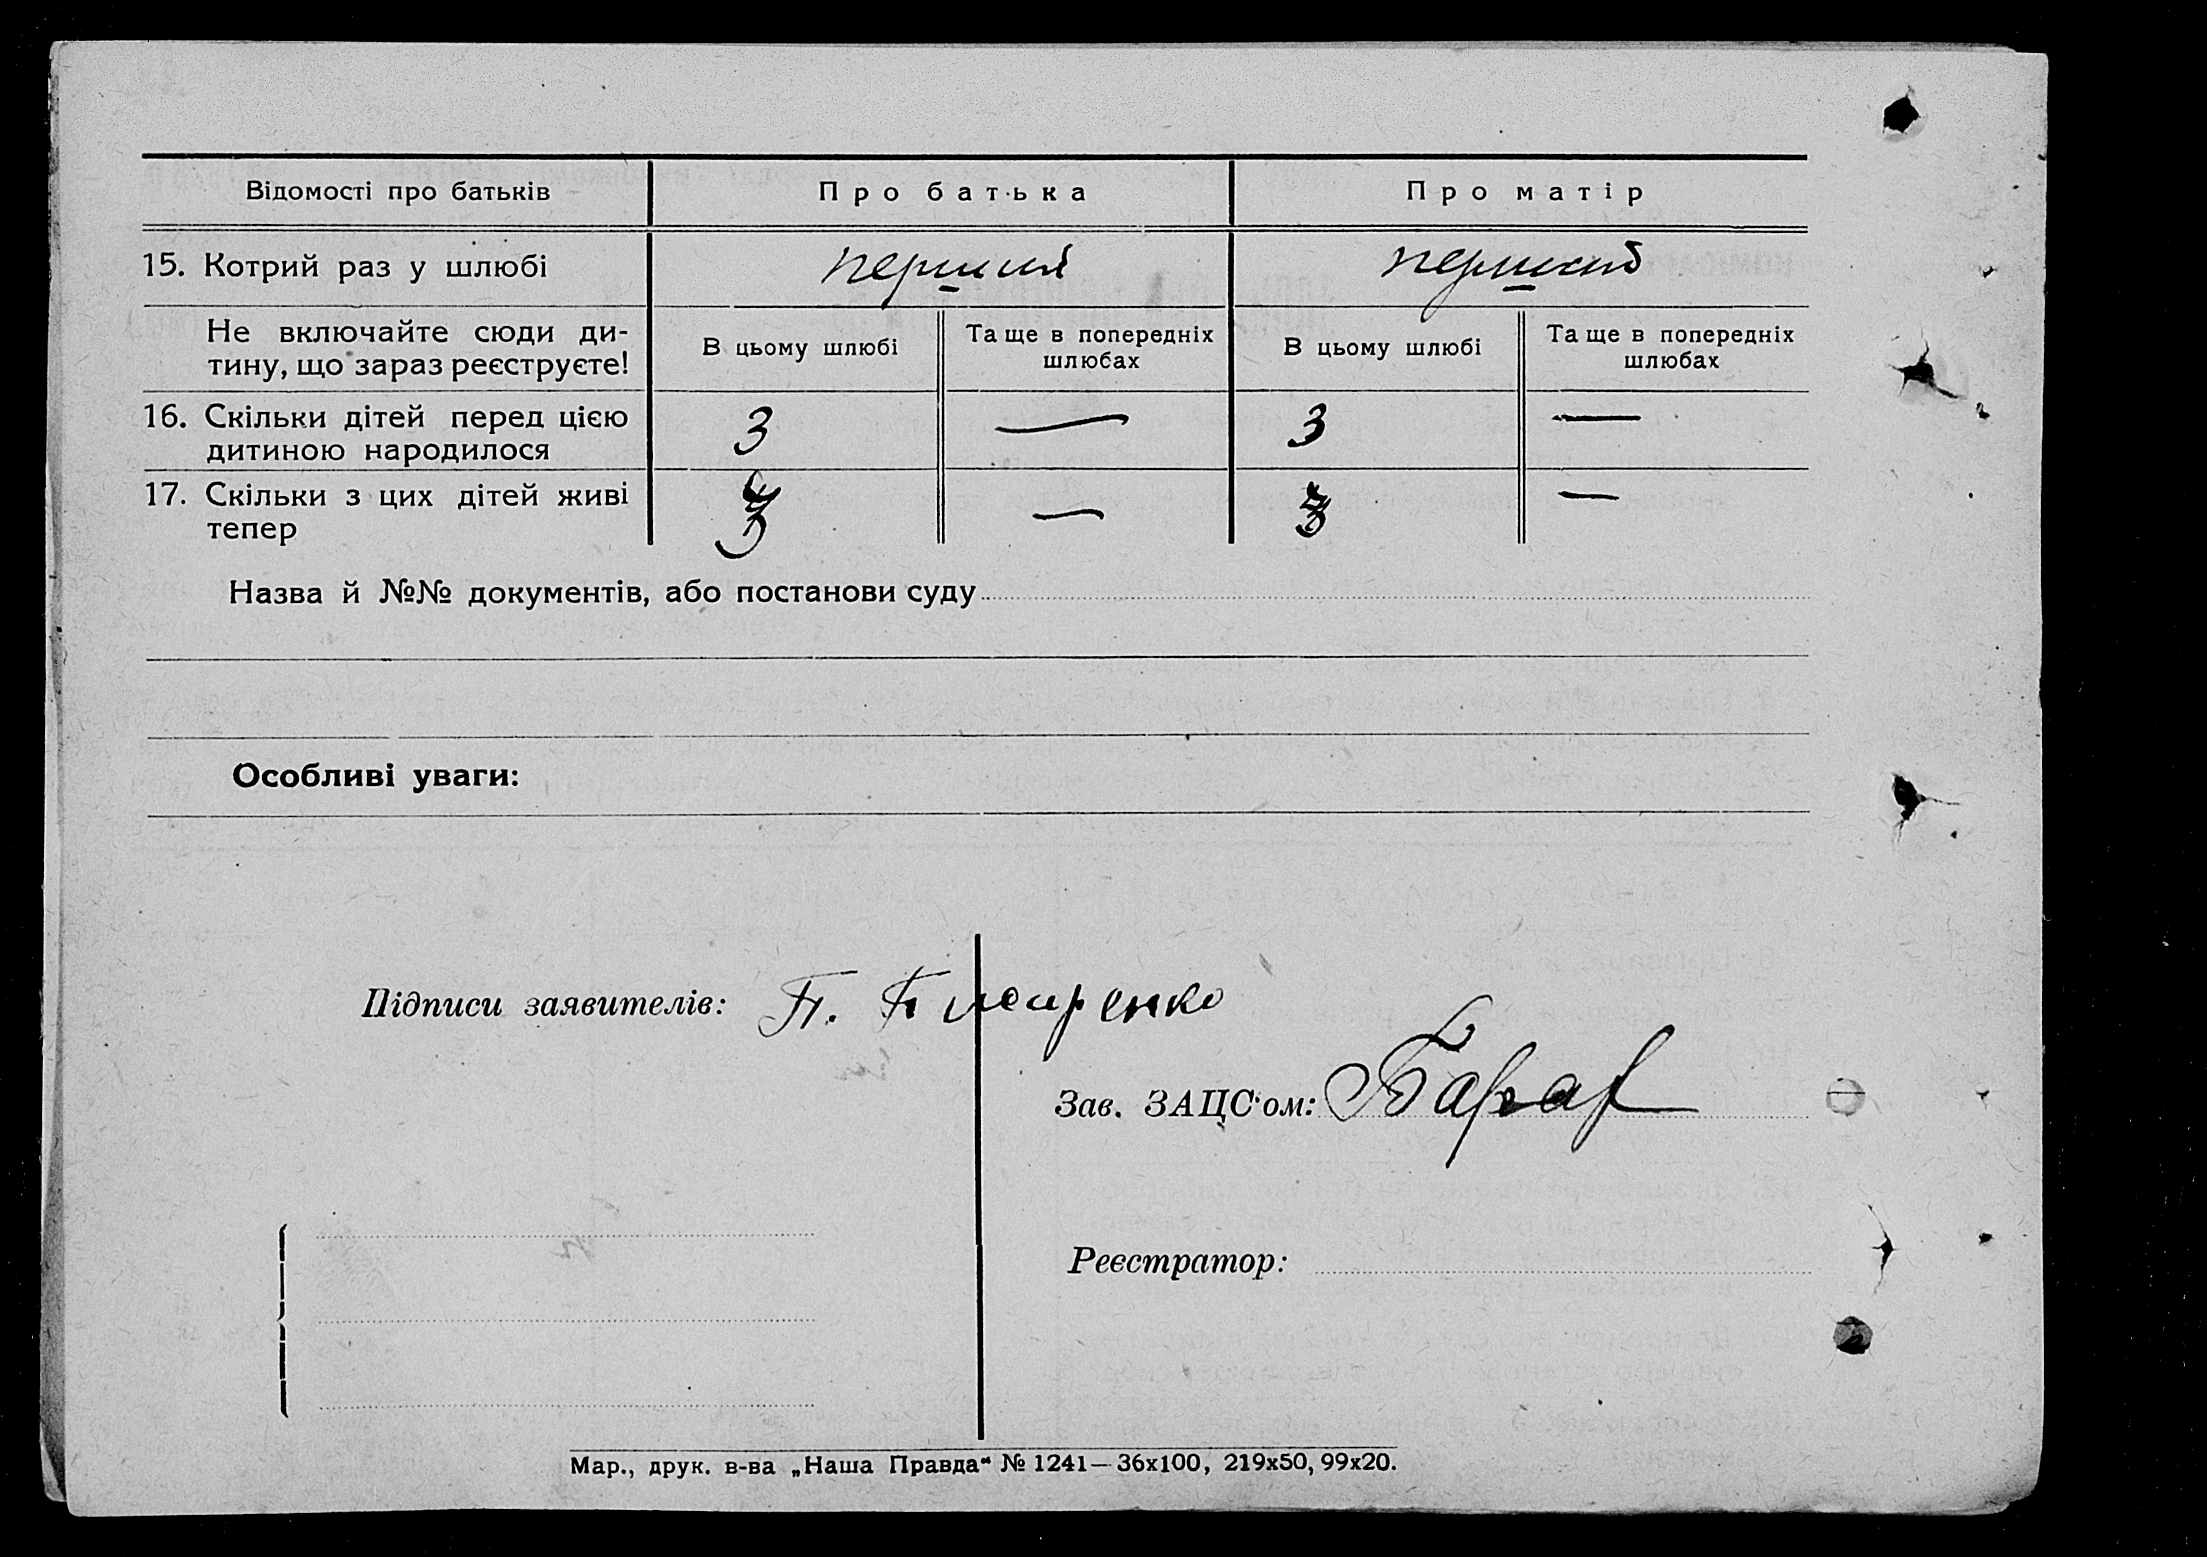 Відомості про батьків Про батька Про матір
15. Котрий раз у шлюбі перший перший
Не включайте сюди ди-
тину, що зараз реєструєте!
В цьому шлюбі
Та ще в попередніх
шлюбах
В цьому шлюбі
Та ще в попередніх
шлюбах
16. Скільки дітей перед цією
дитиною народилося
3 — 3 —
17. Скільки з цих дітей живі
тепер
3 — 3 —
Назва й №№ документів, або постанови суду
Особливі уваги:
Підписи заявителів: П.
Зав. ЗАЦС'ом:
Реєстратор:
Мар., друк. в-ва „Наша Правда" № 1241—36х100, 219х50, 99х20.